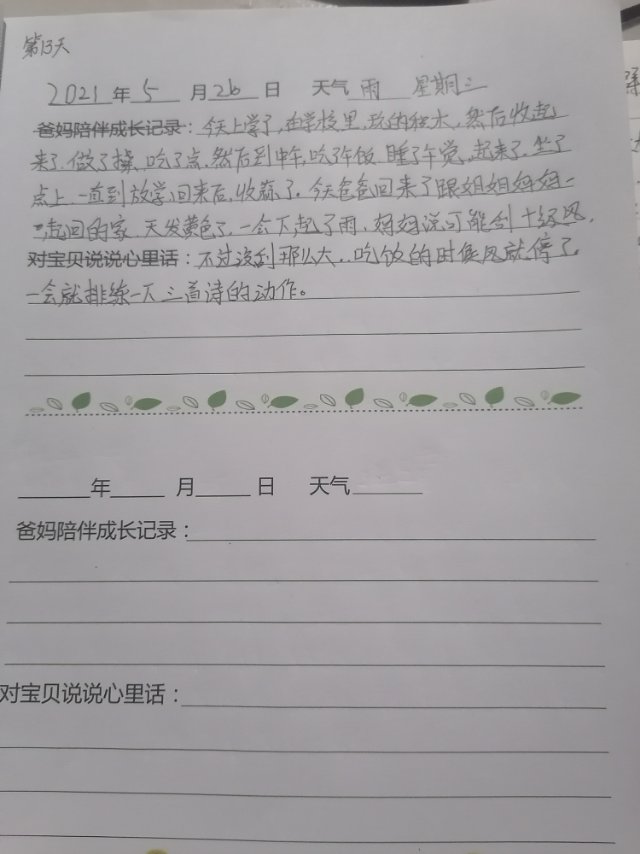 第13天
2021年5月26日 天气雨 星期三
爸妈陪伴成长记录：今天上学了,在学校里,玩的积木,然后收起
来了.做了操,吃了点,然后到中午,吃了午饭,睡了午觉,起来了.坐了
点上一直到放学,回来后,收蒜了.今天爸爸回来了跟姐姐妈妈一
起回的家,天发黄色了,一会下起了雨,妈妈说可能刮十级风,
对宝贝说说心里话：不过没刮那么大,吃饭的时候风就停了,
一会就排练一下三首诗的动作。
年 月 日 天气
爸妈陪伴成长记录：
对宝贝说说心里话：